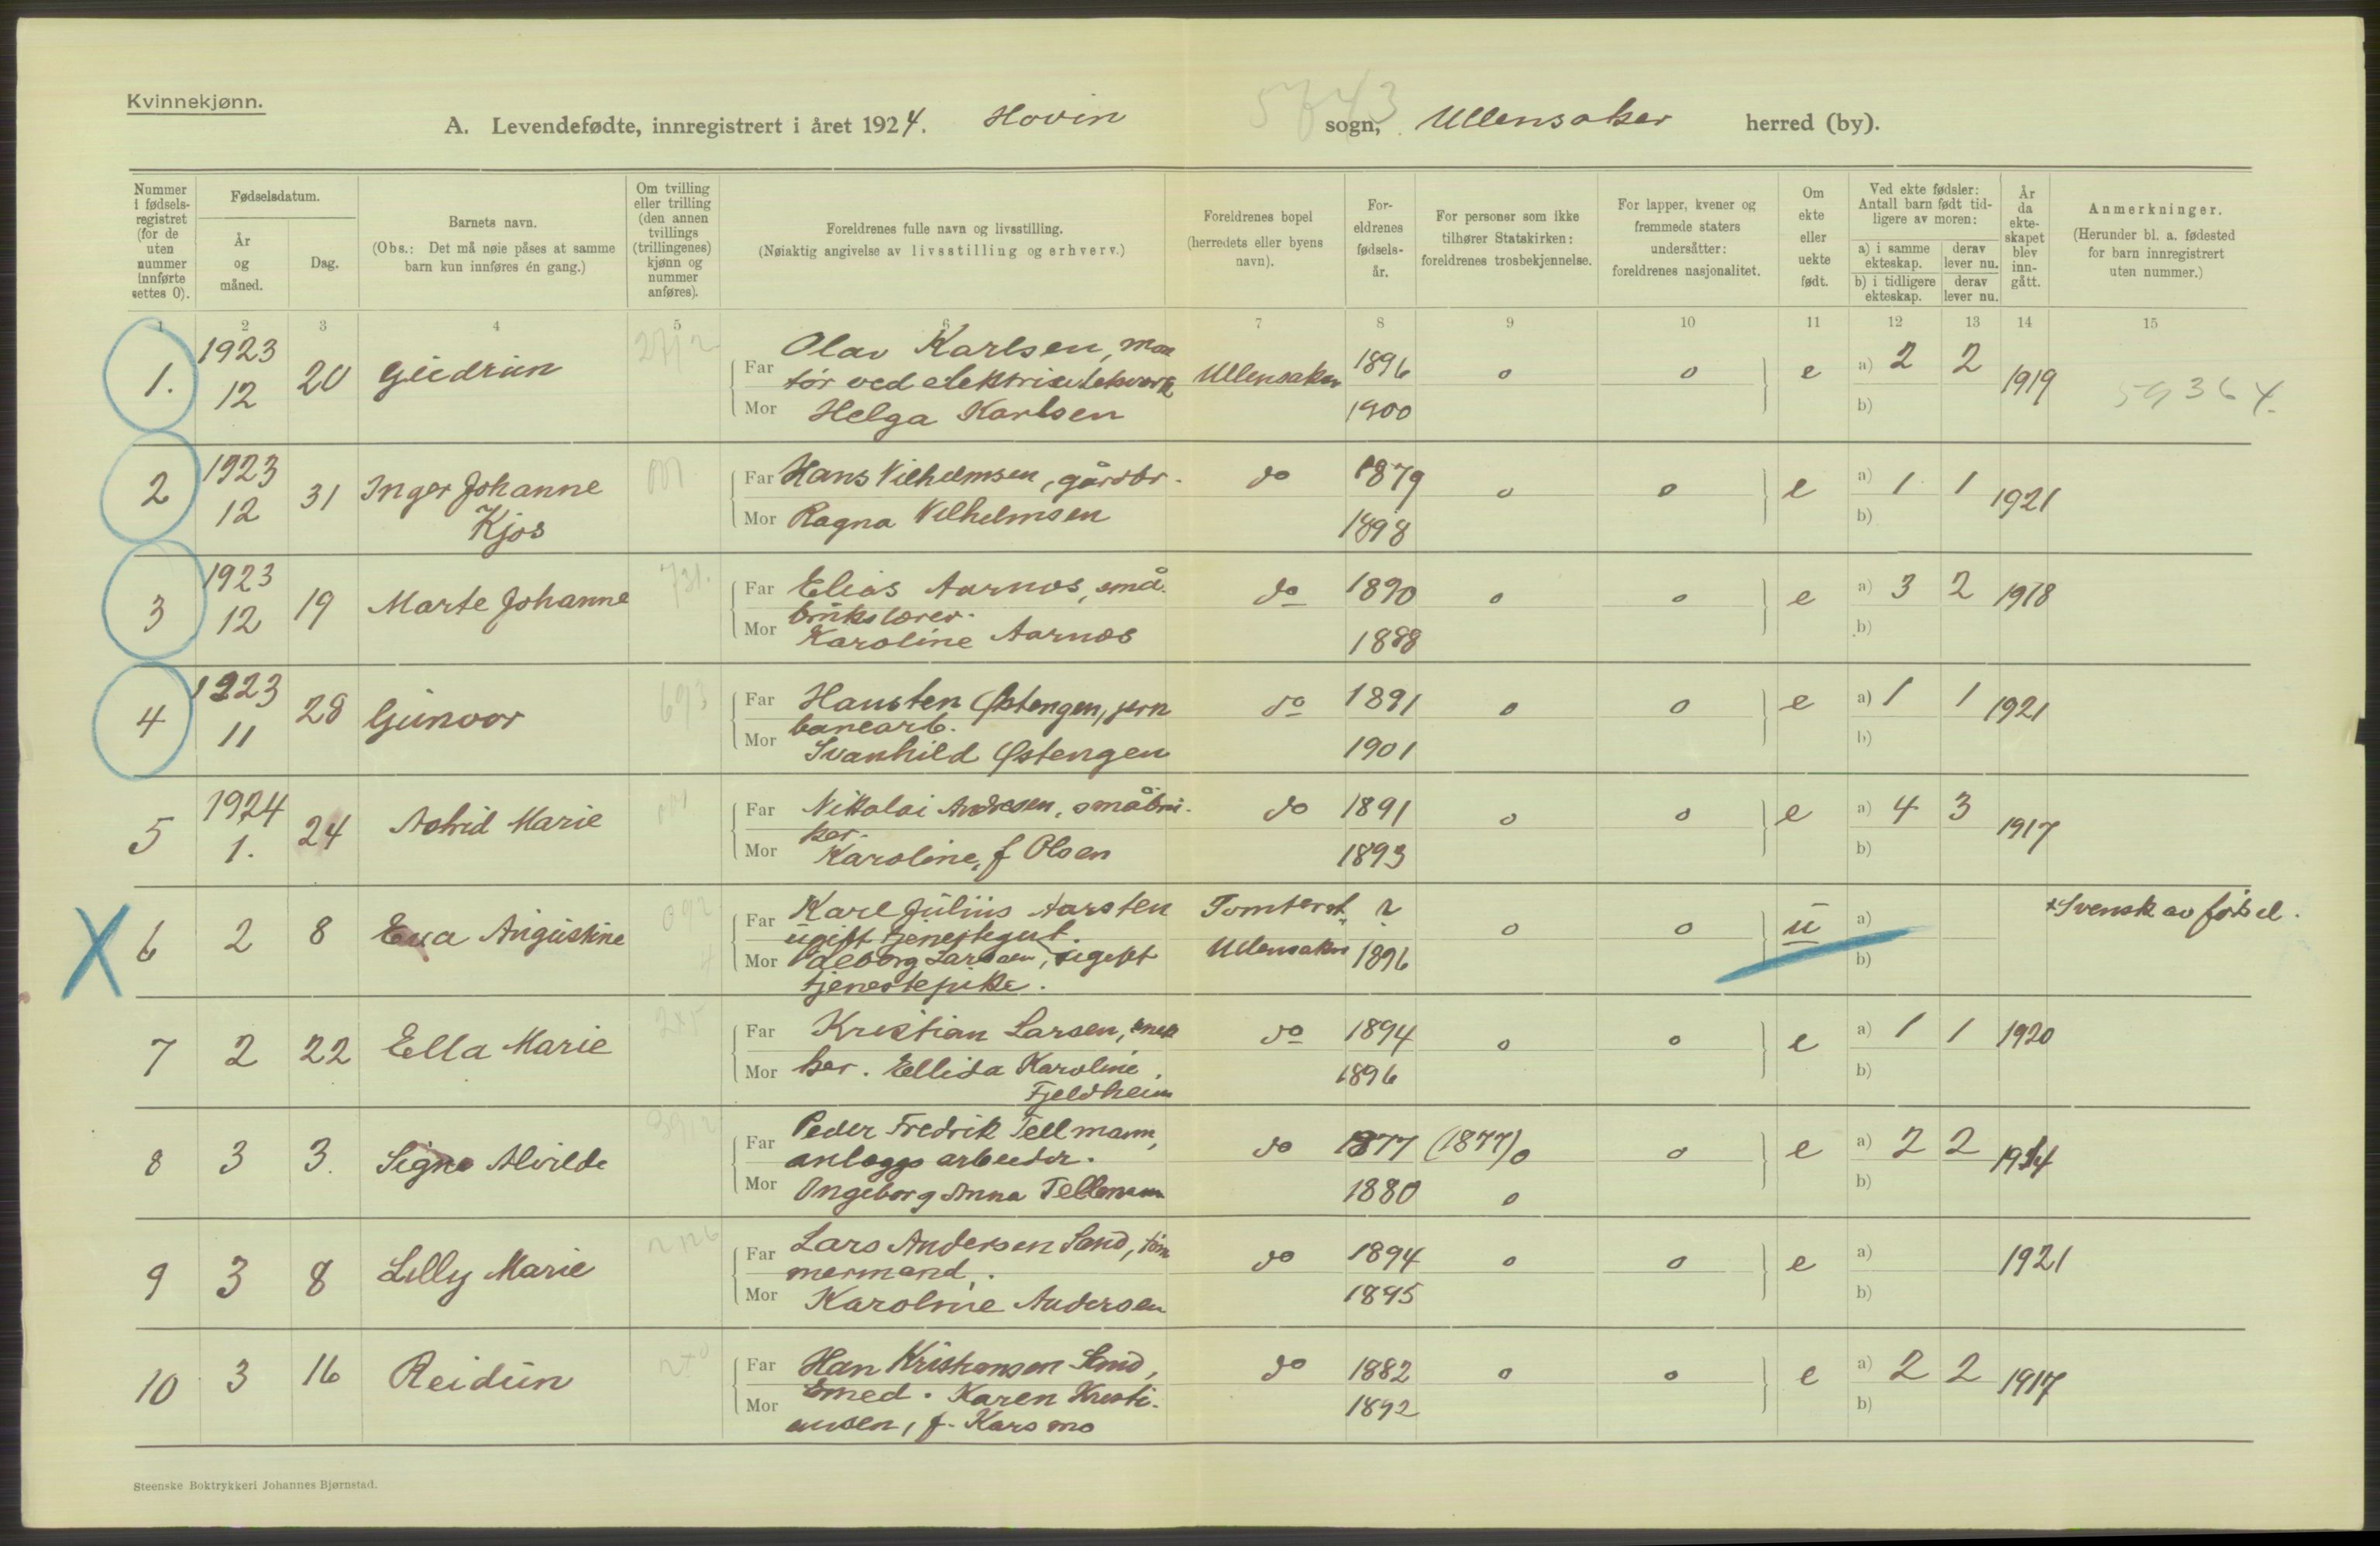 Kvinnekjønn.
A. Levendefødte, innregistrert i året 1924. Hovin sogn, Ullensaker herred (by).
5743
Nummer i fødselsregistret (for de uten nummer innførte settes 0).
Fødselsdatum.
År og måned.
Dag.
Barnets navn.
(Obs.: Det må nøie påses at samme barn kun innføres én gang.)
Om tvilling eller trilling (den annen tvillings (trillingenes) kjønn og nummer anføres).
Foreldrenes fulle navn og livsstilling.
(Nøiaktig angivelse av livsstilling og erhverv.)
Foreldrenes bopel (herredets eller byens navn).
Foreldrenes fødselsår.
For personer som ikke tilhører Statskirken: foreldrenes trosbekjennelse.
For lapper, kvener og fremmede staters undersåtter: foreldrenes nasjonalitet.
Om ekte eller uekte født.
Ved ekte fødsler: Antall barn født tidligere av moren:
a) i samme ekteskap. derav lever nu.
b) i tidligere ekteskap. derav lever nu.
År da ekteskapet blev inngått.
Anmerkninger.
(Herunder bl. a. fødested for barn innregistrert uten nummer.)
1 2 3 4 5 6 7 8 9 10 11 12 13 14 15
1. 1923 12 20 Gudrun
Far Olav Karlsen, mon
tør ved elektrisitetsverk Ullensaker 1896 o o e a) 2 2 1919 59364
Mor Helga Karlsen 1900 b)
2 1923 12 31 Inger Johanne Kjos
Far Hans Vilhelmsen, gårdbr. do 1879 o o e a) 1 1 1921
Mor Ragna Vilhelmsen 1898 b)
3 1923 12 19 Marte Johanne 731.
Far Elias Aarnes, små
brukslærer. do 1890 o o e a) 3 2 1918
Mor Karoline Aarnes 1888 b)
4 1923 11 28 Gunvor 693
Far Hansten Østengen, jern
banearb. do 1891 o o e a) 1 1 1921
Mor Svanhild Østengen 1901 b)
5 1924 1. 24 Astrid Marie
Far Nikolai Andresen, småbru-
ker. do 1891 o o e a) 4 3 1917
Mor Karoline, f Olsen 1893 b)
X 6 2 8 Eva Augustine 092
Far Karl Julius Aarsten Tomter st. ? o o u a) + Svensk av fødsel.
ugift tjenestegut.
Mor Valborg Larsen, ugift Ullensaker 1896 b)
tjenestepike.
7 2 22 Ella Marie
Far Kristian Larsen, snek do 1894 o o e a) 1 1 1920
Mor ker. Ellida Karoline 1896 b)
Fjeldheim
8 3 3. Signe Alvilde
Far Peder Fredrik Tellmann,
anleggsarbeider. do 1877 (1877) o o e a) 2 2 1914
Mor Ingeborg Anna Tellmann 1880 o b)
9 3 8 Lilly Marie
Far Lars Andersen Sand, töm
mermand, do 1894 o o e a) 1921
Mor Karoline Andersen 1895 b)
10 3 16 Reidun
Far Han Kristiansen Sand, do 1882 o o e a) 2 2 1917
Mor Smed. Karen Kristi- 1892 b)
ansen, f. Karsmo
Steenske Boktrykkeri Johannes Bjørnstad.